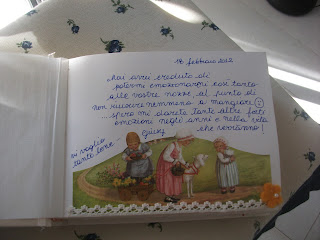 14 febbraio 2012
...mai avrei creduto di
potermi emozionarmi così tanto
alle vostre nozze, al punto di
non riuscire nemmeno a mangiare
...spero mi darete tante altre forti
emozioni negli anni e nella vita
che verranno!
Giusy
vi voglio
tanto bene